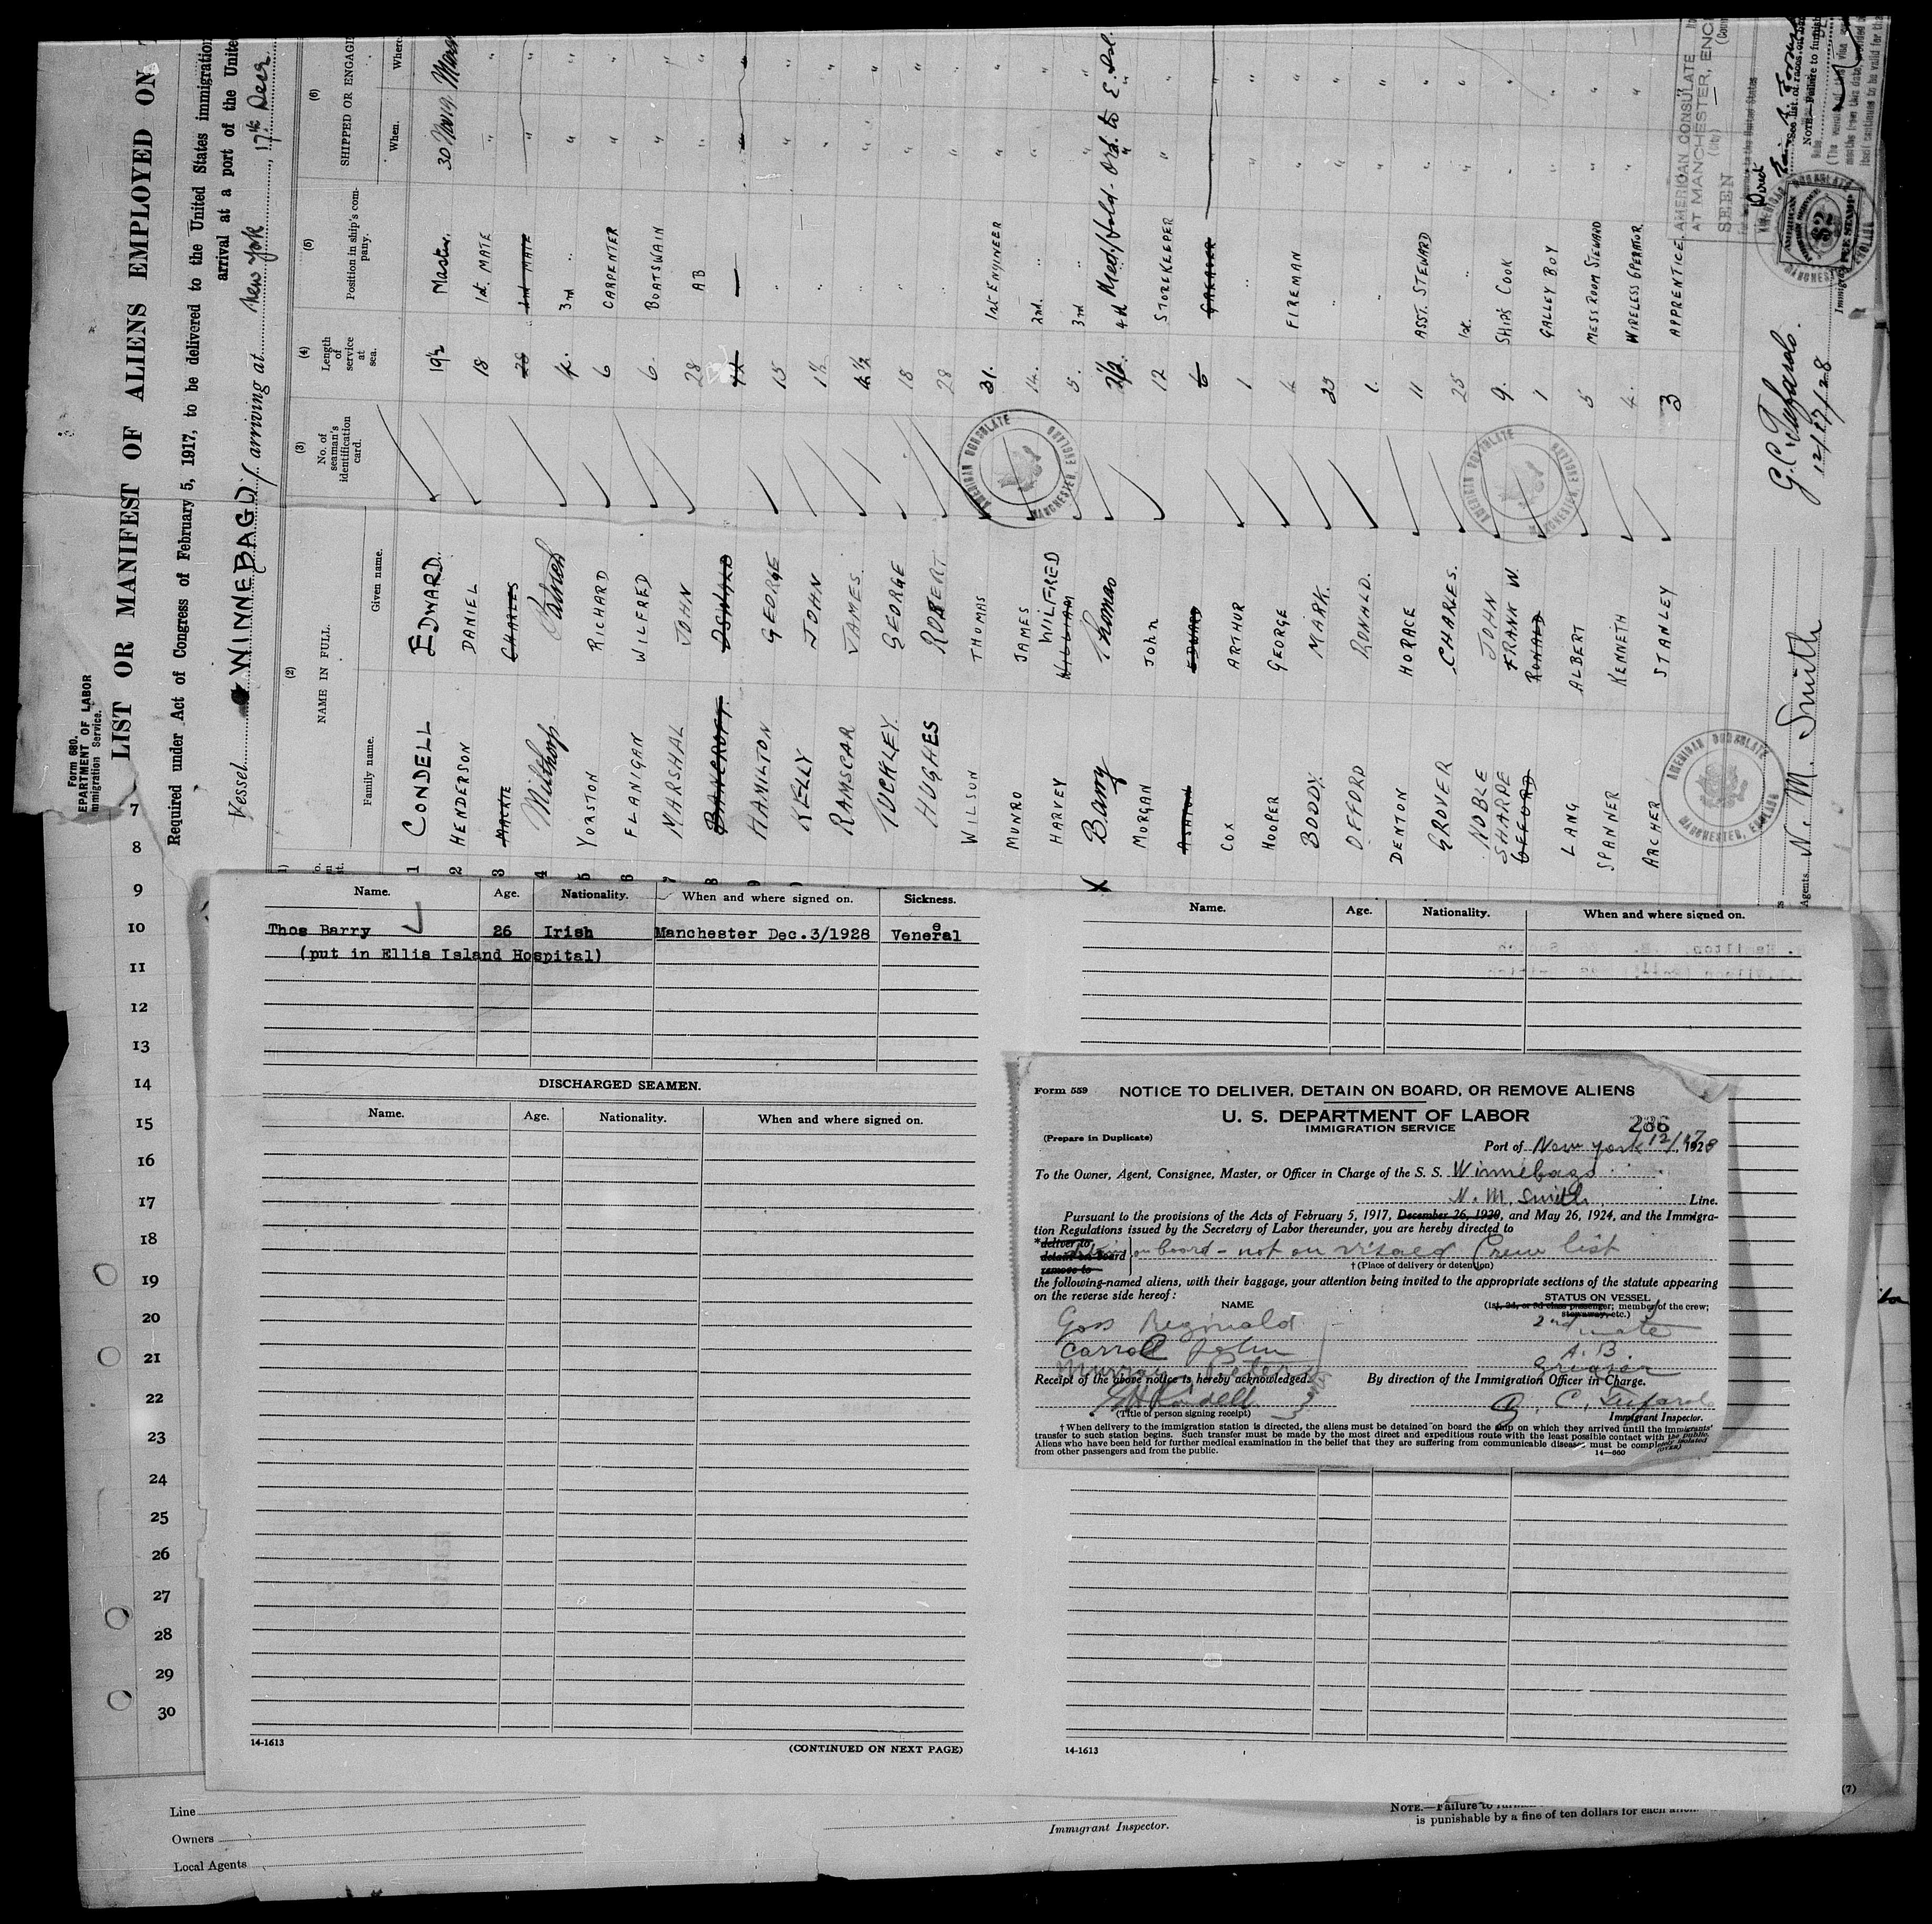 Form 680.
EPARTMENT OF LABOR
mmigration Service.
LIST OR MANIFEST OF ALIENS EMPLOYED ON
Required under Act of Congress of February 5, 1917, to be delivered to the United States immigration
arrival at a port of the Unite
Vessel WINNEBAGO arriving at New York, 17th Decr
(2) (3) (4) (5) (6)
NAME IN FULL. No. of seaman's identification card. Length of service at sea. Position in ship's company. SHIPPED OR ENGAG
Family name. Given name. When. Where.
1 CONDELL EDWARD 19½ Master
2 HENDERSON DANIEL 18 1st. MATE "
3 MACKIE CHARLES 28 2nd MATE "
4 Milthorp Patrick 4. 3rd " "
5 YORSTON RICHARD 6 CARPENTER "
6 FLANIGAN WILFRED 6. BOATSWAIN "
7 MARSHAL JOHN 28 AB "
8 BANCROFT
9 HAMILTON GEORGE 15 " "
KELLY JOHN 1½ " "
RAMSCAR JAMES. 4½ " "
TUCKLEY. GEORGE 18 " "
HUGHES ROBERT 28 " "
WILSON THOMAS 31. 1st ENGINEER "
MUNRO JAMES 14. 2nd. " "
HARVEY WILLIAM WILFRED 5. 3rd " "
X Barry Thomas 2½ 4th " Med/Hold - Ord. to E. Isl.
MORGAN John 12 STOREKEEPER "
ASHTON EDWARD 6 GREASER "
COX ARTHUR 1 "
HOOPER GEORGE 4 FIREMAN "
BODDY MARK. 23 " "
OFFORD RONALD. 1. " "
DENTON HORACE 11 ASST. STEWARD "
GROVER CHARLES. 25 1st. " "
NOBLE JOHN 9. SHIPS COOK "
SHARPE FRANK W.
GEFFORD RONALD 1 GALLEY BOY "
LANG ALBERT 5 MESS ROOM STEWARD "
SPANNER KENNETH 4. WIRELESS OPERATOR "
ARCHER STANLEY 3 APPRENTICE.
AMERICAN CONSULATE
AT MANCHESTER, ENG
SEEN
Direct
AMERICAN CONSULATE
MANCHESTER, ENGLAND
G. C. Tufarolo.
12/17/28
Agents N. M. Smith
7
8
9
10
11
12
13
14
15
16
17
18
19
20
21
22
23
24
25
26
27
28
29
30
Name. Age. Nationality. When and where signed on. Sickness.
Thos Barry 26 Irish Manchester Dec.3/1928 Veneral
(put in Ellis Island Hospital)
DISCHARGED SEAMEN.
Name. Age. Nationality. When and where signed on.
14-1613 (CONTINUED ON NEXT PAGE)
Name. Age. Nationality. When and where signed on.
Form 559 NOTICE TO DELIVER, DETAIN ON BOARD, OR REMOVE ALIENS
U. S. DEPARTMENT OF LABOR
IMMIGRATION SERVICE
286
(Prepare in Duplicate)
Port of New York 12/17, 1928
To the Owner, Agent, Consignee, Master, or Officer in Charge of the S. S. Winnebago
N. M. Smith Line.
Pursuant to the provisions of the Acts of February 5, 1917, December 26, 1920, and May 26, 1924, and the Immigra-
tion Regulations issued by the Secretary of Labor thereunder, you are hereby directed to
*deliver to
detain on board
remove to
on board - not on visaed Crew list
† (Place of delivery or detention)
the following-named aliens, with their baggage, your attention being invited to the appropriate sections of the statute appearing
on the reverse side hereof:
NAME STATUS ON VESSEL
(1st, 2d, or 3d class passenger; member of the crew;
stowaway, etc.)
Goss Reginald 2nd mate
Carroll John A. B.
Murray Peter Greaser
Receipt of the above notice is hereby acknowledged. By direction of the Immigration Officer in Charge.
G. C. Tufarolo
(Title of person signing receipt) Immigrant Inspector.
† When delivery to the immigration station is directed, the aliens must be detained on board the ship on which they arrived until the immigrants'
transfer to such station begins. Such transfer must be made by the most direct and expeditious route with the least possible contact with the public.
Aliens who have been held for further medical examination in the belief that they are suffering from communicable disease, must be completely isolated
from other passengers and from the public. 14—660 (OVER)
14-1613
(7)
Line
Owners
Local Agents
Immigrant Inspector.
NOTE.—Failure to
is punishable by a fine of ten dollars for each